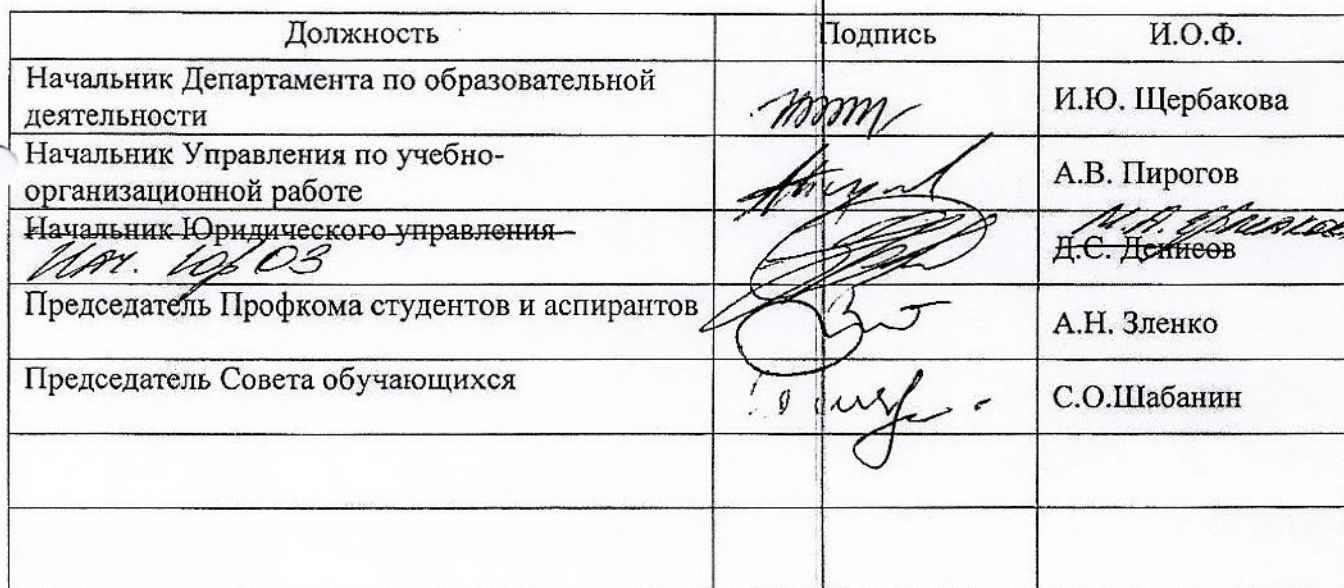 Должность Подпись И.О.Ф.
Начальник Департамента по образовательной
деятельности
И.Ю. Щербакова
Начальник Управления по учебно-
организационной работе
А.В. Пирогов
Начальник Юридического управления
Нач. ЮрОЗ
М.А.
Д.С. Денисов
Председатель Профкома студентов и аспирантов
А.Н. Зленко
Председатель Совета обучающихся
С.О.Шабанин